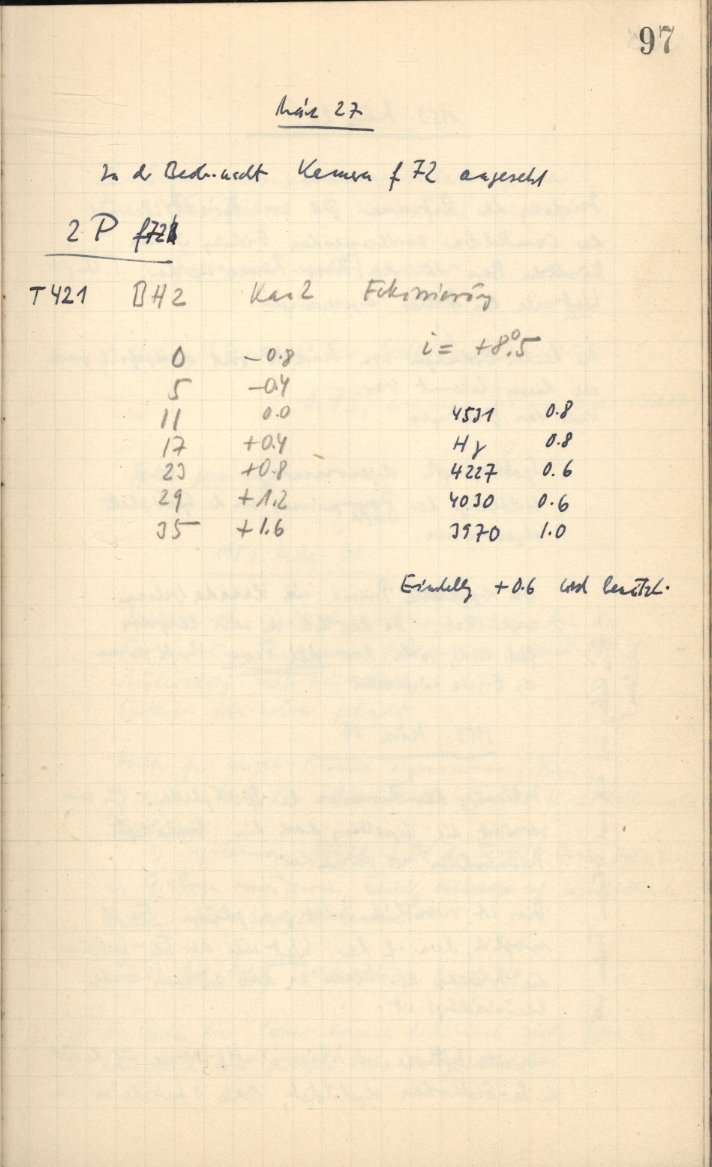 97
März 27
In der Kamera f 72 angesetzt
2 P f72
T421 BH2 Kas2 Fokussierung
i = +8°.5
0 −0.8
5 −0.4
11 0.0 4531 0.8
17 +0.4 Hγ 0.8
23 +0.8 4227 0.6
29 +1.2 4030 0.6
35 +1.6 3970 1.0
+0.6 wird benützt.